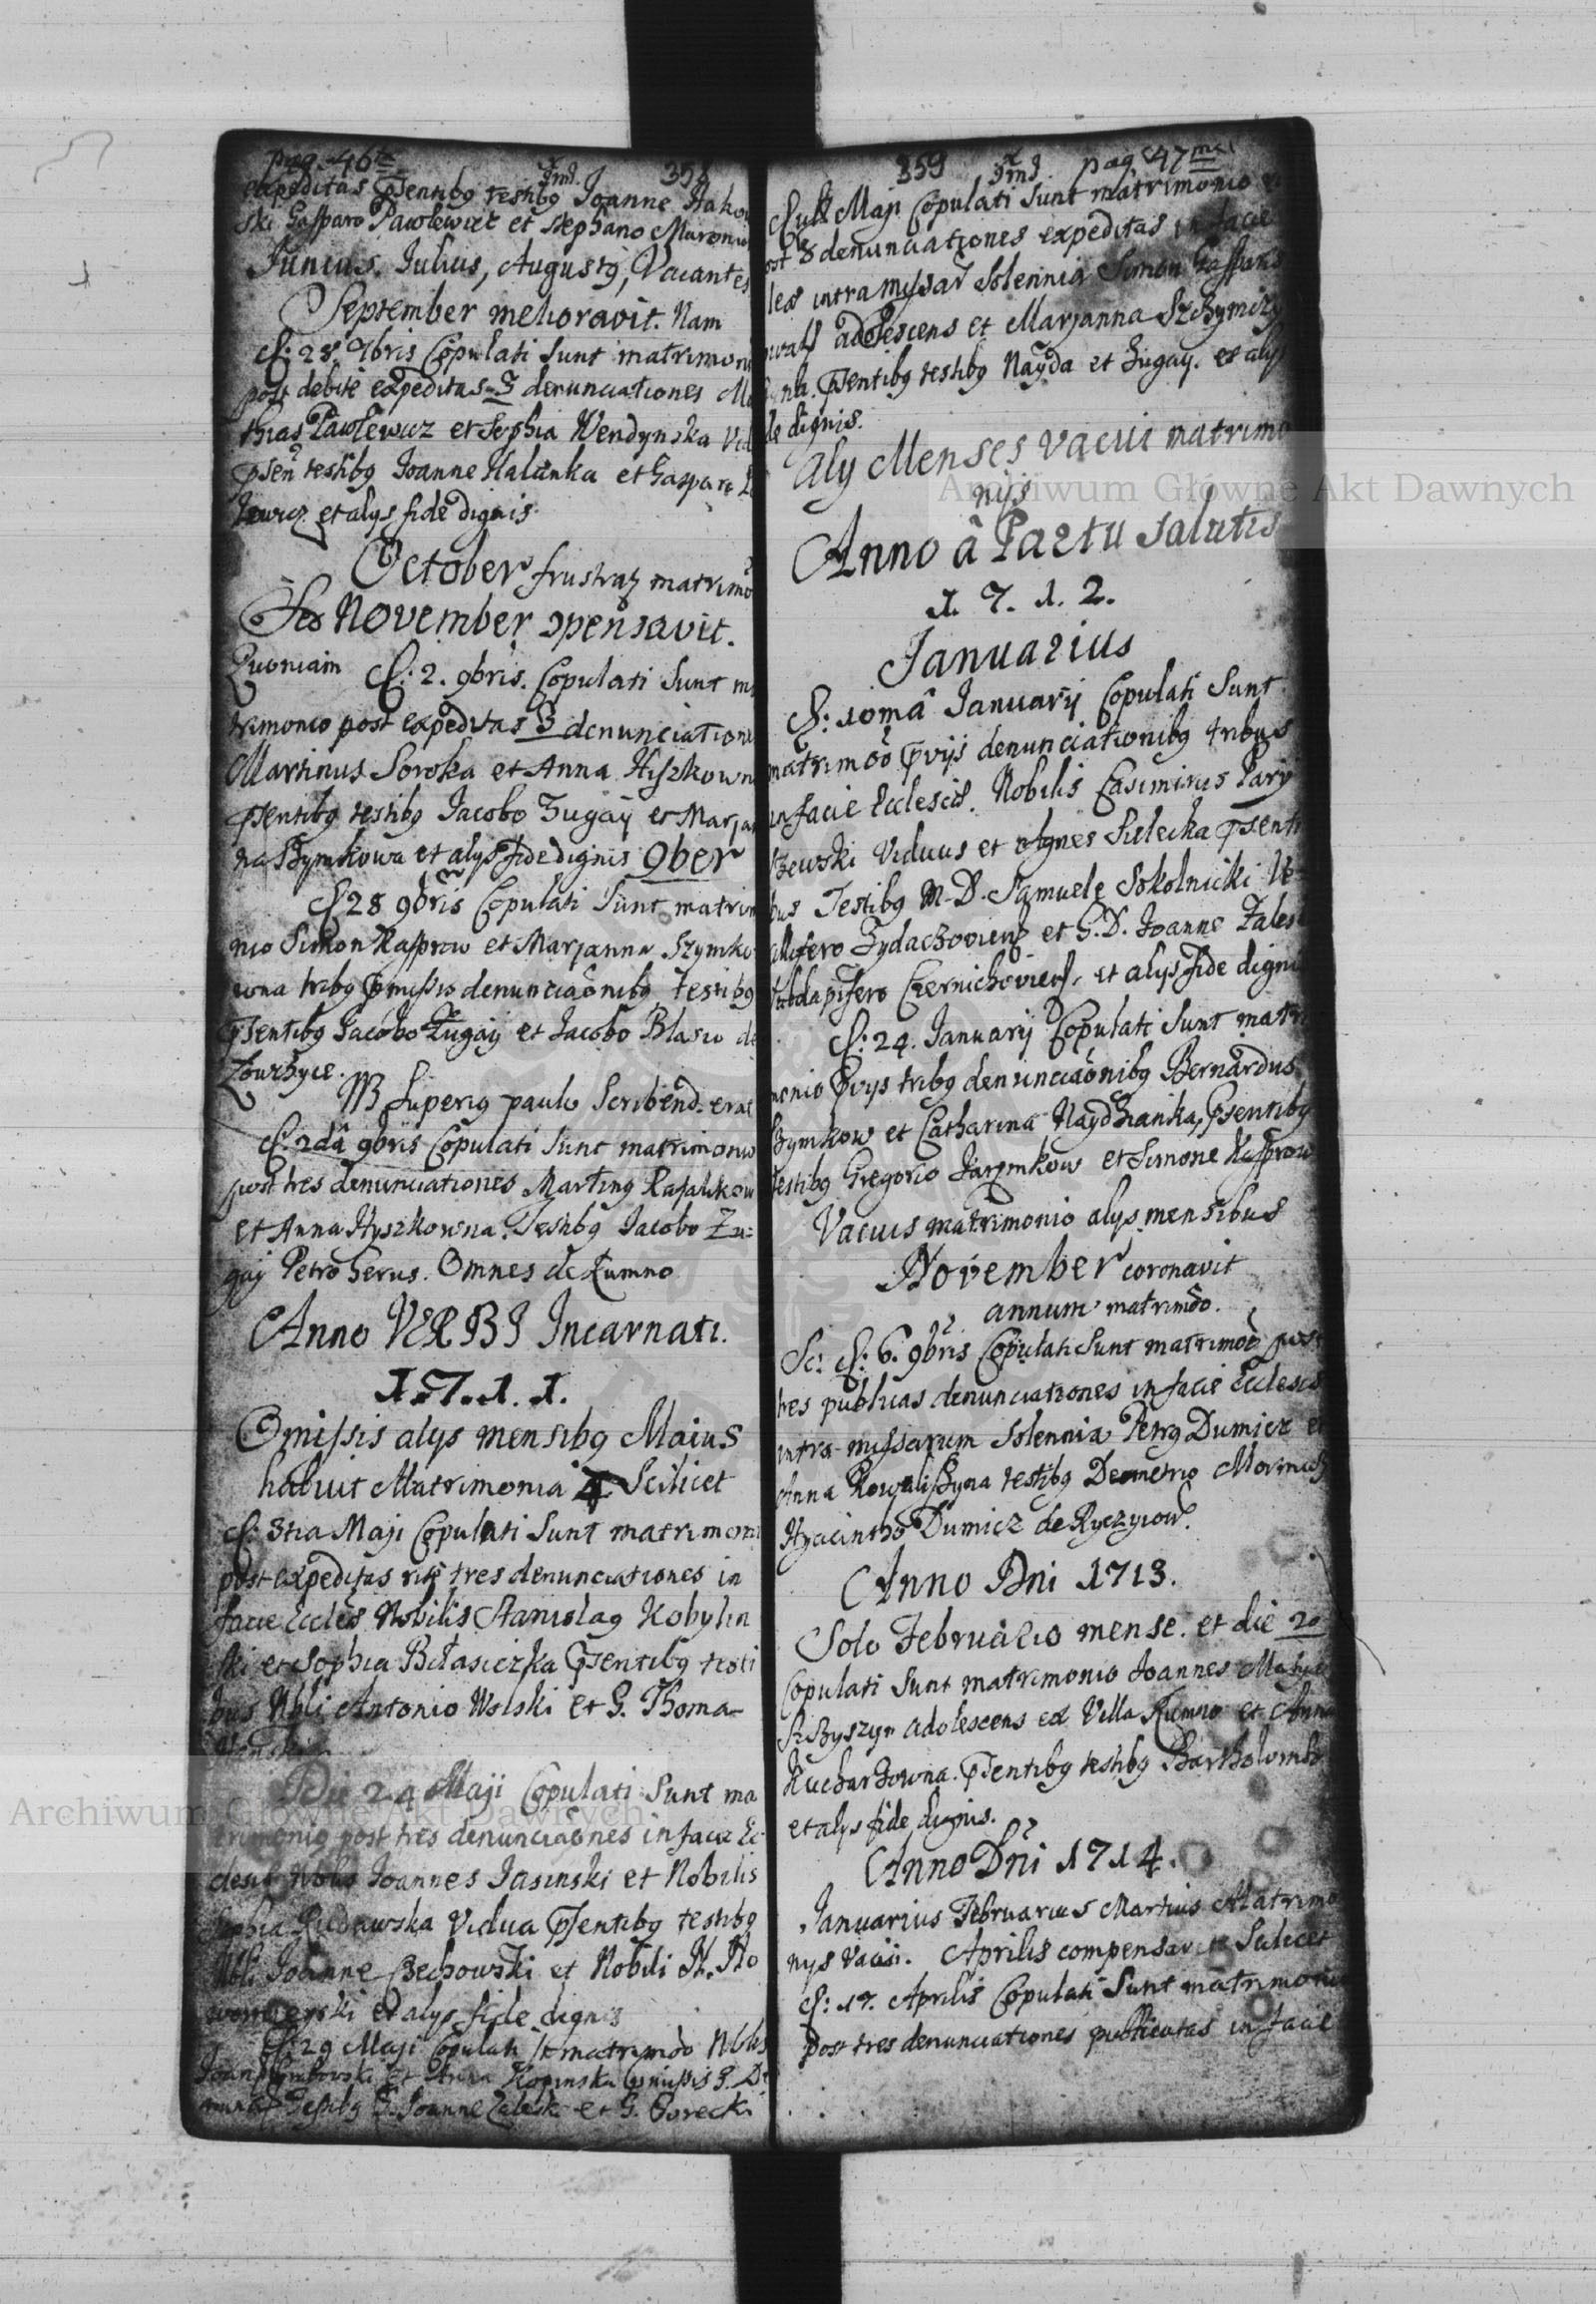 pag. 46ta 358
expeditas psentibg testibg Joanne Hakow
ski Gasparo Pawlewicz et Stephano Muronio
Junius, Julius, Augustg, Vacantes
September melioravit. Nam
D: 28. 7bris Copulati sunt matrimon
post debite expeditas 3 denunciationes Ma
thias Pawlewicz et Sophia Wendynska Vid
psen testibg Joanne Halunka et Gaspare
lewicz et alys fide dignis.
October frustrag matrimo
November 9pensavit.
Quoniam D: 2. 9bris. Copulati sunt ma
trimonio post expeditas 3 denunciatione
Martinus Soroka et Anna Hyszkown
psentibg testibg Jacobo Zugaÿ et Marjan
na Szymkowa et alys fide dignis 9ber
D 28 9bris Copulati sunt matrim
nio Simon Kasprow et Marjanna Szymko
wna tribg pmissis denunciaonibg testibg
psentibg Jacobo Zugaÿ et Jacobo Blasio de
NB Superig paulo Scribend. erat
D: 2dâ 9bris Copulati sunt matrimonio
post tres denunciationes Marting Rafalikow
et Anna Hyszkowna. Testibg Jacobo Zu=
gaÿ Petro Herus. Omnes de Rumno
Anno VERBI Incarnati.
1.7.1.1.
Omissis alys mensibg Maius
habuit Matrimonia 4 Scilicet
D: 3tia Maji Copulati sunt matrimoni
post expeditas rite tres denunciationes in
facie Eccles Nobilis Stanislag Kobylin
ski et Sophia Bilasiczka psentibg testi
bus Nbli Antonio Wolski et G. Thoma
Die 24 Maji Copulati sunt ma
trimonio post tres denunciaones in facie Ec
clesie Nblis Joannes Jasinski et Nobilis
Sophia Rudawska Vidua psentibg testibg
Nbli Joanne Czechowski et Nobili N. No
womieyski et alys fide dignis
D: 29 Maji Copulati st matrimoo Nblis
Joan Dembowski et Anna Kopinska pmissis 3. De
nunciat Testibg G. Joanne Zaleski et G. Gorecki
359 pag 47ma
Maji Copulati sunt matrimonio
post 3 denunciationes expeditas in facie
les intra missar solennia Simon Gaspars
adolescens et Marjanna Szczymczy
psentibg testibg Nayda et Zugay. et alys
de dignis.
Aly Menses vacui matrimo
nijs
Anno â Partu Salutis
1. 7. 1. 2.
Januarius
D: 10mâ Januarÿ Copulati sunt
matrimoo pvijs denunciationibg tribus
in facie Ecclesiæ. Nobilis Casimirus Pary
szewski Viduus et Agnes Sielecka psenti
bus Testibg M. D. Samuele Sokolnicki
Zydaczoviens et G. D. Joanne Zaleski
Subdapifero Czernichoviens, et alys fide dignis
D: 24. Januarÿ Copulati sunt matri
monio pvys tribg denunciaonibg Bernardus
Szymkow et Catharina Naydzianka, psentibg
testibg Gregorio Jarymkow et Simone Kasprow
Vacuis matrimonio alys mensibus
November coronavit
annum matrimoo.
Sc: D: 6. 9bris Copulati sunt matrimoo post
tres publicas denunciationes in facie Ecclesiæ
intra missarum solennia Petrg Dumicz et
Anna Kowaliszyna testibg Demetrio Mormusz
Hyacintho Dumicz de Ryczyow.
Anno Dni 1713.
Solo Februario mense. et die 20
Copulati sunt matrimonio Joannes Matys
adolescens ex Villa Rumno et Anna
Kucharzowna. psentibg testibg Bartholomeo
et alys fide dignis.
Anno Dni 1714.
Januarius Februarius Martius Matrimo
nys vacui. Aprilis compensavit Scilicet
D: 17. Aprilis Copulati sunt matrimonio
post tres denunciationes publicatas in facie
Archiwum Główne Akt Dawnych
Archiwum Główne Akt Dawnych